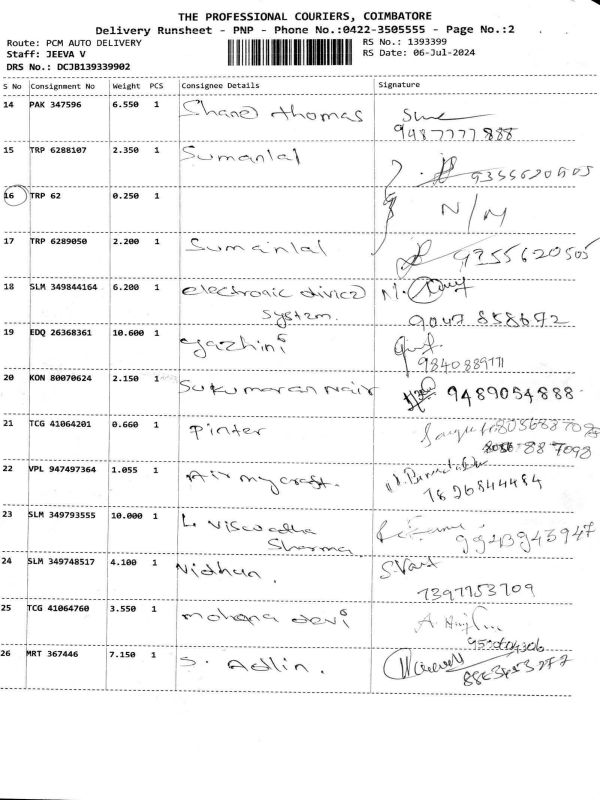 THE PROFESSIONAL COURIERS, COIMBATORE
Delivery Runsheet - PNP - Phone No.:0422-3505555 - Page No.:2
Route: PCM AUTO DELIVERY RS No.: 1393399
Staff: JEEVA V RS Date: 06-Jul-2024
DRS No.: DCJB139339902
S No Consignment No Weight PCS Consignee Details Signature
14 PAK 347596 6.550 1 Shane Thomas
9487777888
15 TRP 6288107 2.350 1 Sumanlal 9355620505
16 TRP 62 0.250 1 N/M
17 TRP 6289050 2.200 1 Sumanlal 9355620505
18 SLM 349844164 6.200 1 electronic divice
system. 9047 858672
19 EDQ 26368361 10.600 1 yazhini
9840889771
20 KON 80070624 2.150 1 Sukumaran Nair 9489054888
21 TCG 41064201 0.660 1 Pinter 8056887098
8056 887098
22 VPL 947497364 1.055 1 Air mycraft.
7826844484
23 SLM 349793555 10.000 1 L. Viswadha
Sharma 9943943947
24 SLM 349748517 4.100 1 Nidhan. S.Vart
7397753709
25 TCG 41064760 3.550 1 mohana devi
26 MRT 367446 7.150 1 S. Adlin.